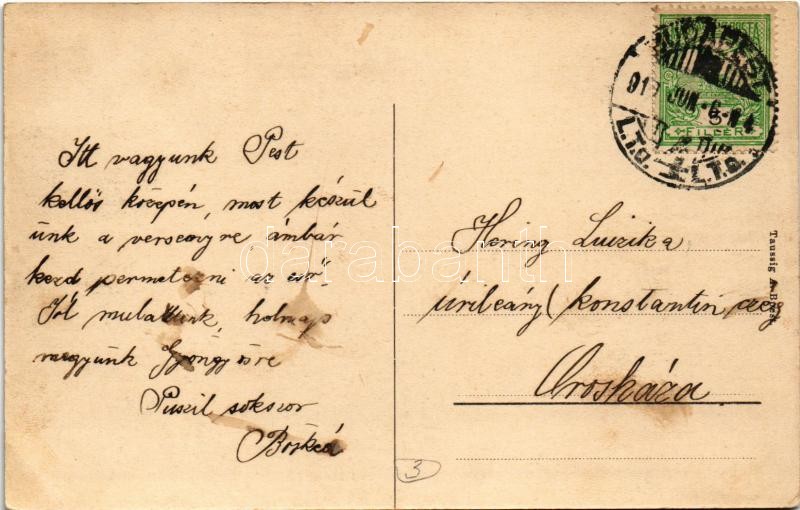 Itt vagyunk Pest
kellős közepén, most készül
ünk a versenyre ámbár
kezd permetezni az eső.
Jól mulattunk, holnap
megyünk Gyöngyösre
Puszil sokszor
Böskéd
BUDAPEST
JUN
FILLÉR
Hering Luizika
úrileány (Konstantin cég
Orosháza
Taussig A. Bpest
darabanth
3